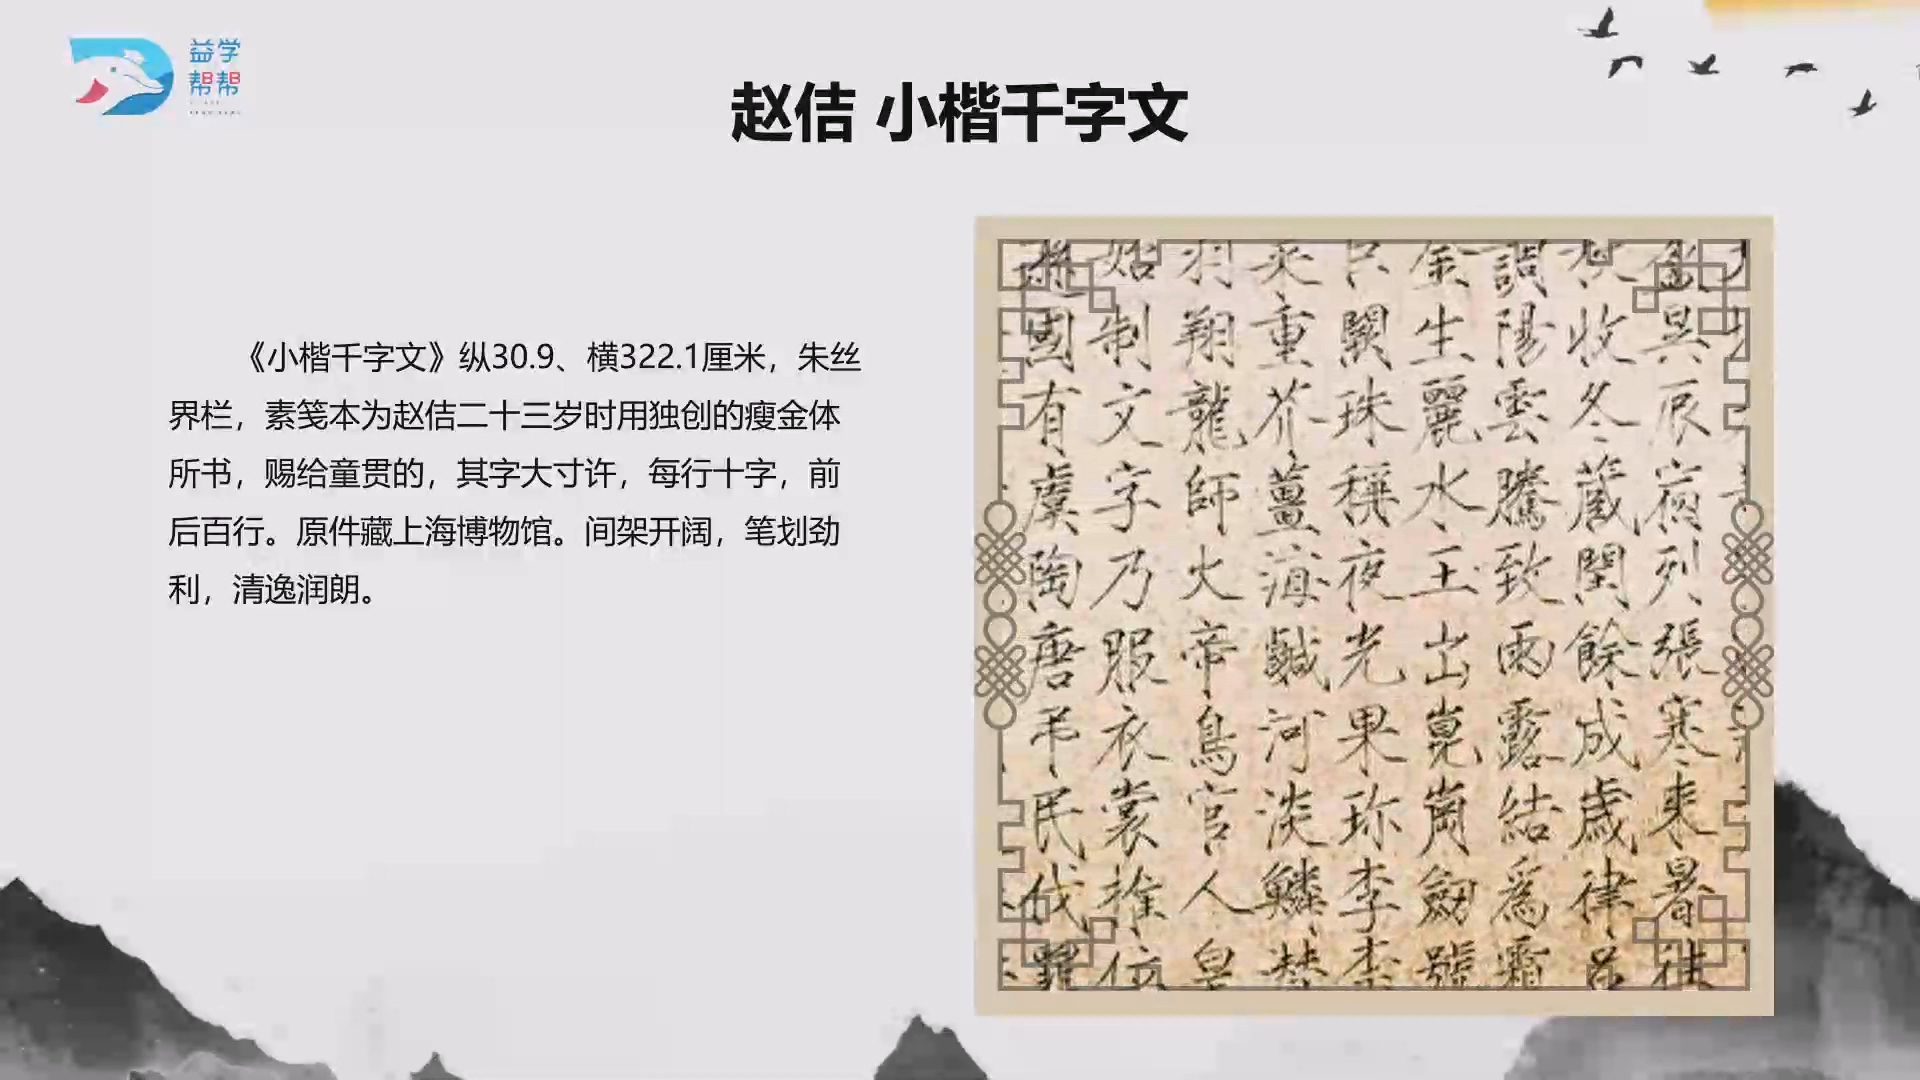 益学
帮帮
赵佶 小楷千字文
《小楷千字文》纵30.9、横322.1厘米，朱丝
界栏，素笺本为赵佶二十三岁时用独创的瘦金体
所书，赐给童贯的，其字大寸许，每行十字，前
后百行。原件藏上海博物馆。间架开阔，笔划劲
利，清逸润朗。
盈昃辰宿列張寒来暑往
秋收冬藏閏餘成歲律呂
調陽雲騰致雨露結爲霜
金生麗水玉出崑崗劒號
巨闕珠稱夜光果珍李柰
菜重芥薑海鹹河淡鱗潛
羽翔龍師火帝鳥官人皇
始制文字乃服衣裳推位
國有虞陶唐弔民伐罪